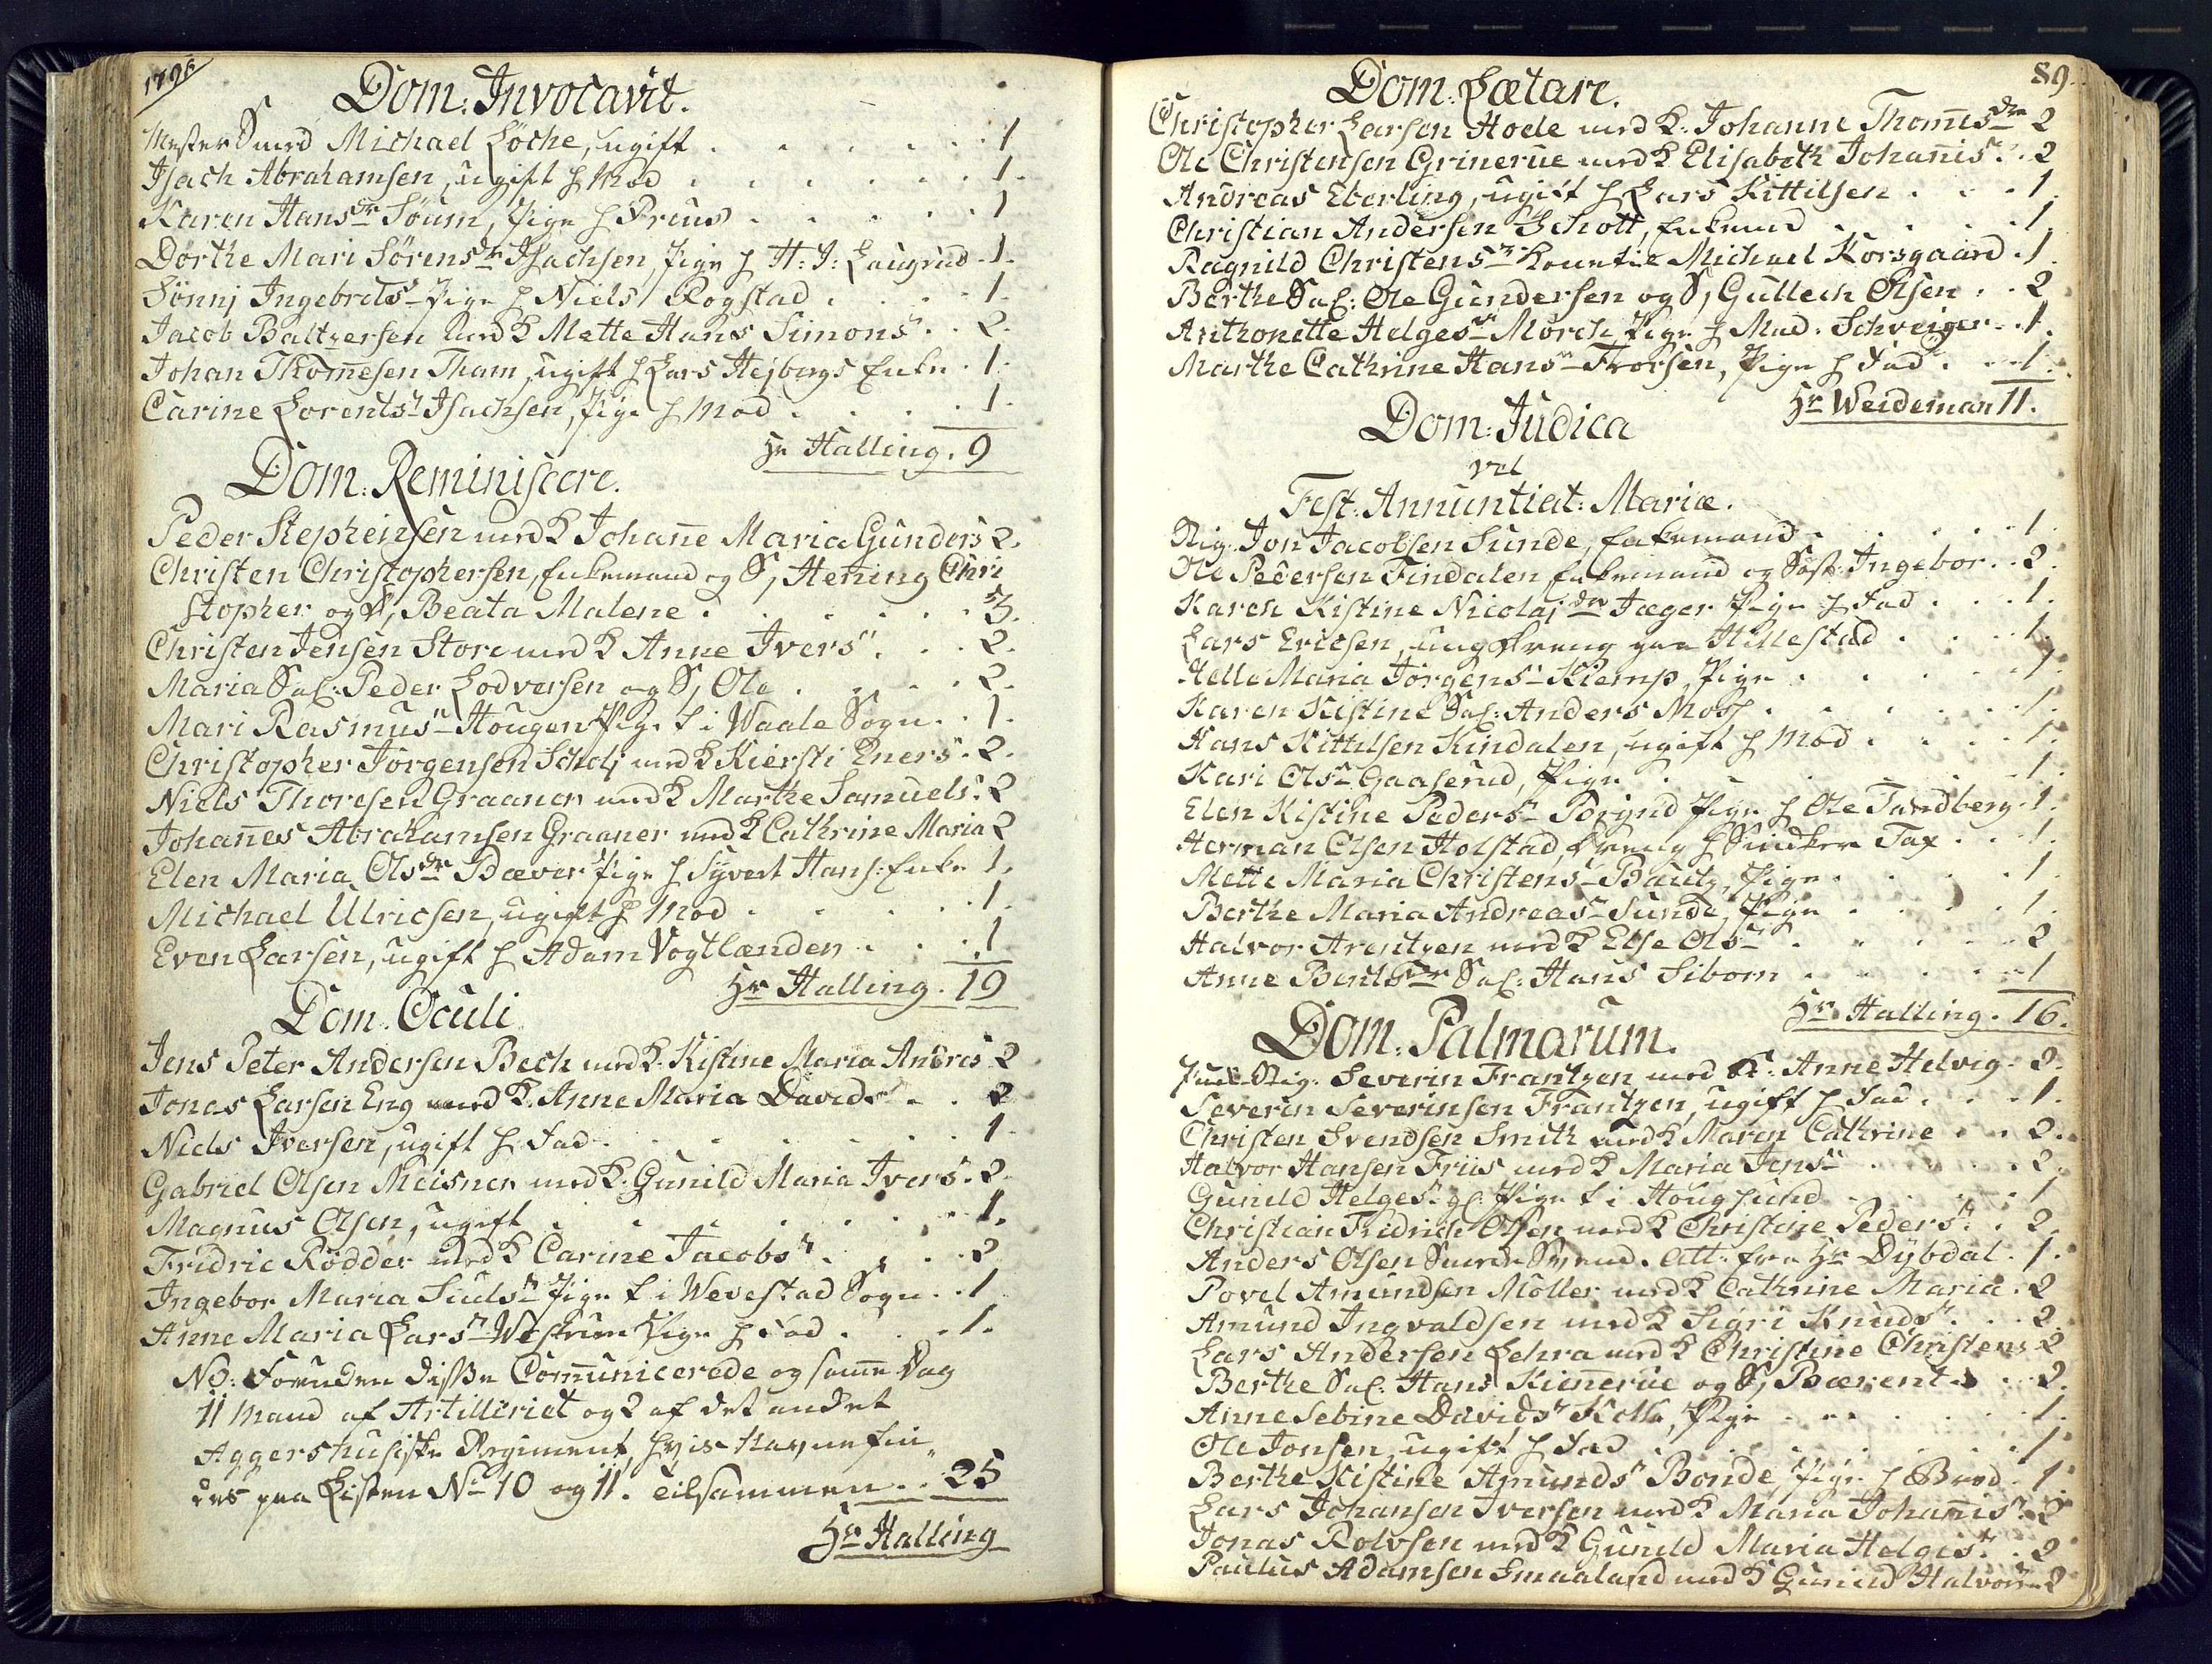 1796
Dom: Invocavit.
Mester Smed Michael Löche, ugift . . . . . 1
Isach Abrahamsen, ugift h Mod . . . . . . 1.
Karen Hansdr Söum, Pige h Preus . . . . . 1
Dorthe Mari Sørensdr Isachsen, Pige h H: J: Laugrud . 1.
Sønnj Ingebrets Pige h Niels Rogstad . . . . 1.
Jacob Baltzersen med K Mette Hans Simons . . 2.
Johan Thomesen Tham, ugift h Lars Hejbergs Enke . 1.
Carine Lorents Isachsen, Pige h Mod . . . . 1.
Hr Halling. 9
Dom: Reminiscere.
Peder Stephensen med K Johane Maria Gunders 2.
Christen Christophersen, Enkemand og S, Hening Chri
stopher og D, Beata Malene . . . . . . 3.
Christen Jensen Store med K Anne Ivers . . . 2.
Maria Sal: Peder Lodversen og S, Ole . . . . 2.
Mari Rasmus Hougen Pige t i Waale Sogn . . 1.
Christopher Jorgensen med K Kiersti Eners . 2.
Niels Thoresen Graaner med K Marthe Samuels . 2
Johanes Abrahamsen Graaner med K Cathrine Maria 2
Elen Maria Olsdr Bæver Pige h Syvert Hans: Enke 1.
Michael Ulricsen, ugift h Mod . . . . . 1.
Even Larsen, ugift h Adam Vogtlænder . . . 1
Hr Halling. 19
Dom. Oculi
Jens Peter Andersen Bech med K. Kistine Maria Andres 2
Jonas Larsen Eng med K. Anne Maria Davids . . 2
Niels Iversen, ugift h Fad . . . . . . 1
Gabriel Olsen Meisner med K. Gunild Maria Ivers . 2.
Magnus Olsen, ugift . . . . . . . 1.
Fridric Rödder med K Carine Jacobs . . . . 2
Ingebor Maria Siuls Pige t i Wevestad Sogn . . 1
Anne Maria Lars Pige h Fad . . . . 1.
NB: Foruden disse Comunicerede og samme Dag
11 Mand af Artilleriet og 2 af det andet
Aggershusiske Regiment, hvis Navne fin„
des paa Listen No 10 og 11. Tilsammen . . 25
Hr Halling
89.
Dom: Lætare.
Christopher Larsen Hoele med K: Johanne Thomesdr 2
Ole Christensen Grinerue med K Elisabeth Johanis . . 2
Andreas Eberling, ugift h Lars Kittilsen . . . 1.
Christian Andersen Schott, Enkemd . . . . 1.
Ragnild Christens Kone til Michael Korsgaard . 1.
Berthe Sal: Ole Gundersen og S, Gullech Olsen . . 2
Anthonette Helges Mörch, Pige h Mad. Schveiger . 1.
Marthe Cathrine Hans Frorsen, Pige h Fad . . 1.
Hr Weideman 11.
Dom: Judica
vel
Fest: Annuntiat: Mariæ.
Sig. Jon Jacobsen Sunde, Enkemand . . . . 1.
Ole Pedersen Findalen Enkemand og Søst: Ingebor . . 2.
Karen Kistine Nicolaj dr Jæger Pige h Fad . . . 1.
Lars Ericsen, ung Dreng paa Hillestad . . . 1.
Helle Maria Jörgens Kiemp, Pige . . . . 1.
Karen Kistine Sal: Anders Moss . . . . . 1.
Hans Kittilsen Kindalen, ugift h Mod . . . 1.
Kari Ols Gaaserud, Pige . . . . . . 1.
Elen Kistine Peders Borgnd Pige h Ole Sandberg . 1.
Herman Olsen Holstad, Dreng h Snidker Fax . . 1.
Mette Maria Christens Bautz, Pige . . . . 1.
Berthe Maria Andreas Sunde, Pige . . . . 1.
Halvor Arentzen med K Else Ols . . . . 2
Anne Bentsdr Sal: Hans Sibom . . . . 1
Hr Halling. 16.
Dom: Palmarum.
Sig. Severin Frantzen med K: Anne Helvig . 2.
Severin Severinsen Frantzen, ugift h Fad . . . 1.
Christen Svendsen Smith med K Maren Cathrine . . 2.
Halvor Hansen Friis med K Maria Jens . . . 2.
Gunild Helges gl: Pige t i Hougsund . . . . 1
Christian Fridrich Olsen med K Christine Peders . . 2.
Anders Olsen Smede Svend. Att: fra Hr Dybdal . 1.
Povel Amundsen Möller med K Cathrine Maria . 2
Amund Ingvaldsen med K Sigri Knuds . . . 2.
Lars Andersen Lehra med K Christine Christens 2
Berthe Sal: Hans Kimerue og S, Bærent . . 2.
Anne Sebine Davids Kolls, Pige . . . . 1.
Ole Jonsen, ugift h Fad . . . . . . 1
Berthe Kistine Amunds Bonde, Pige h Brod . 1
Lars Johansen Iversen med K Maria Johanis . 2
Jonas Rolvsen med K Gunild Maria Helges . . 2
Paulus Adamsen Smaaland med K Gunild Halvors 2